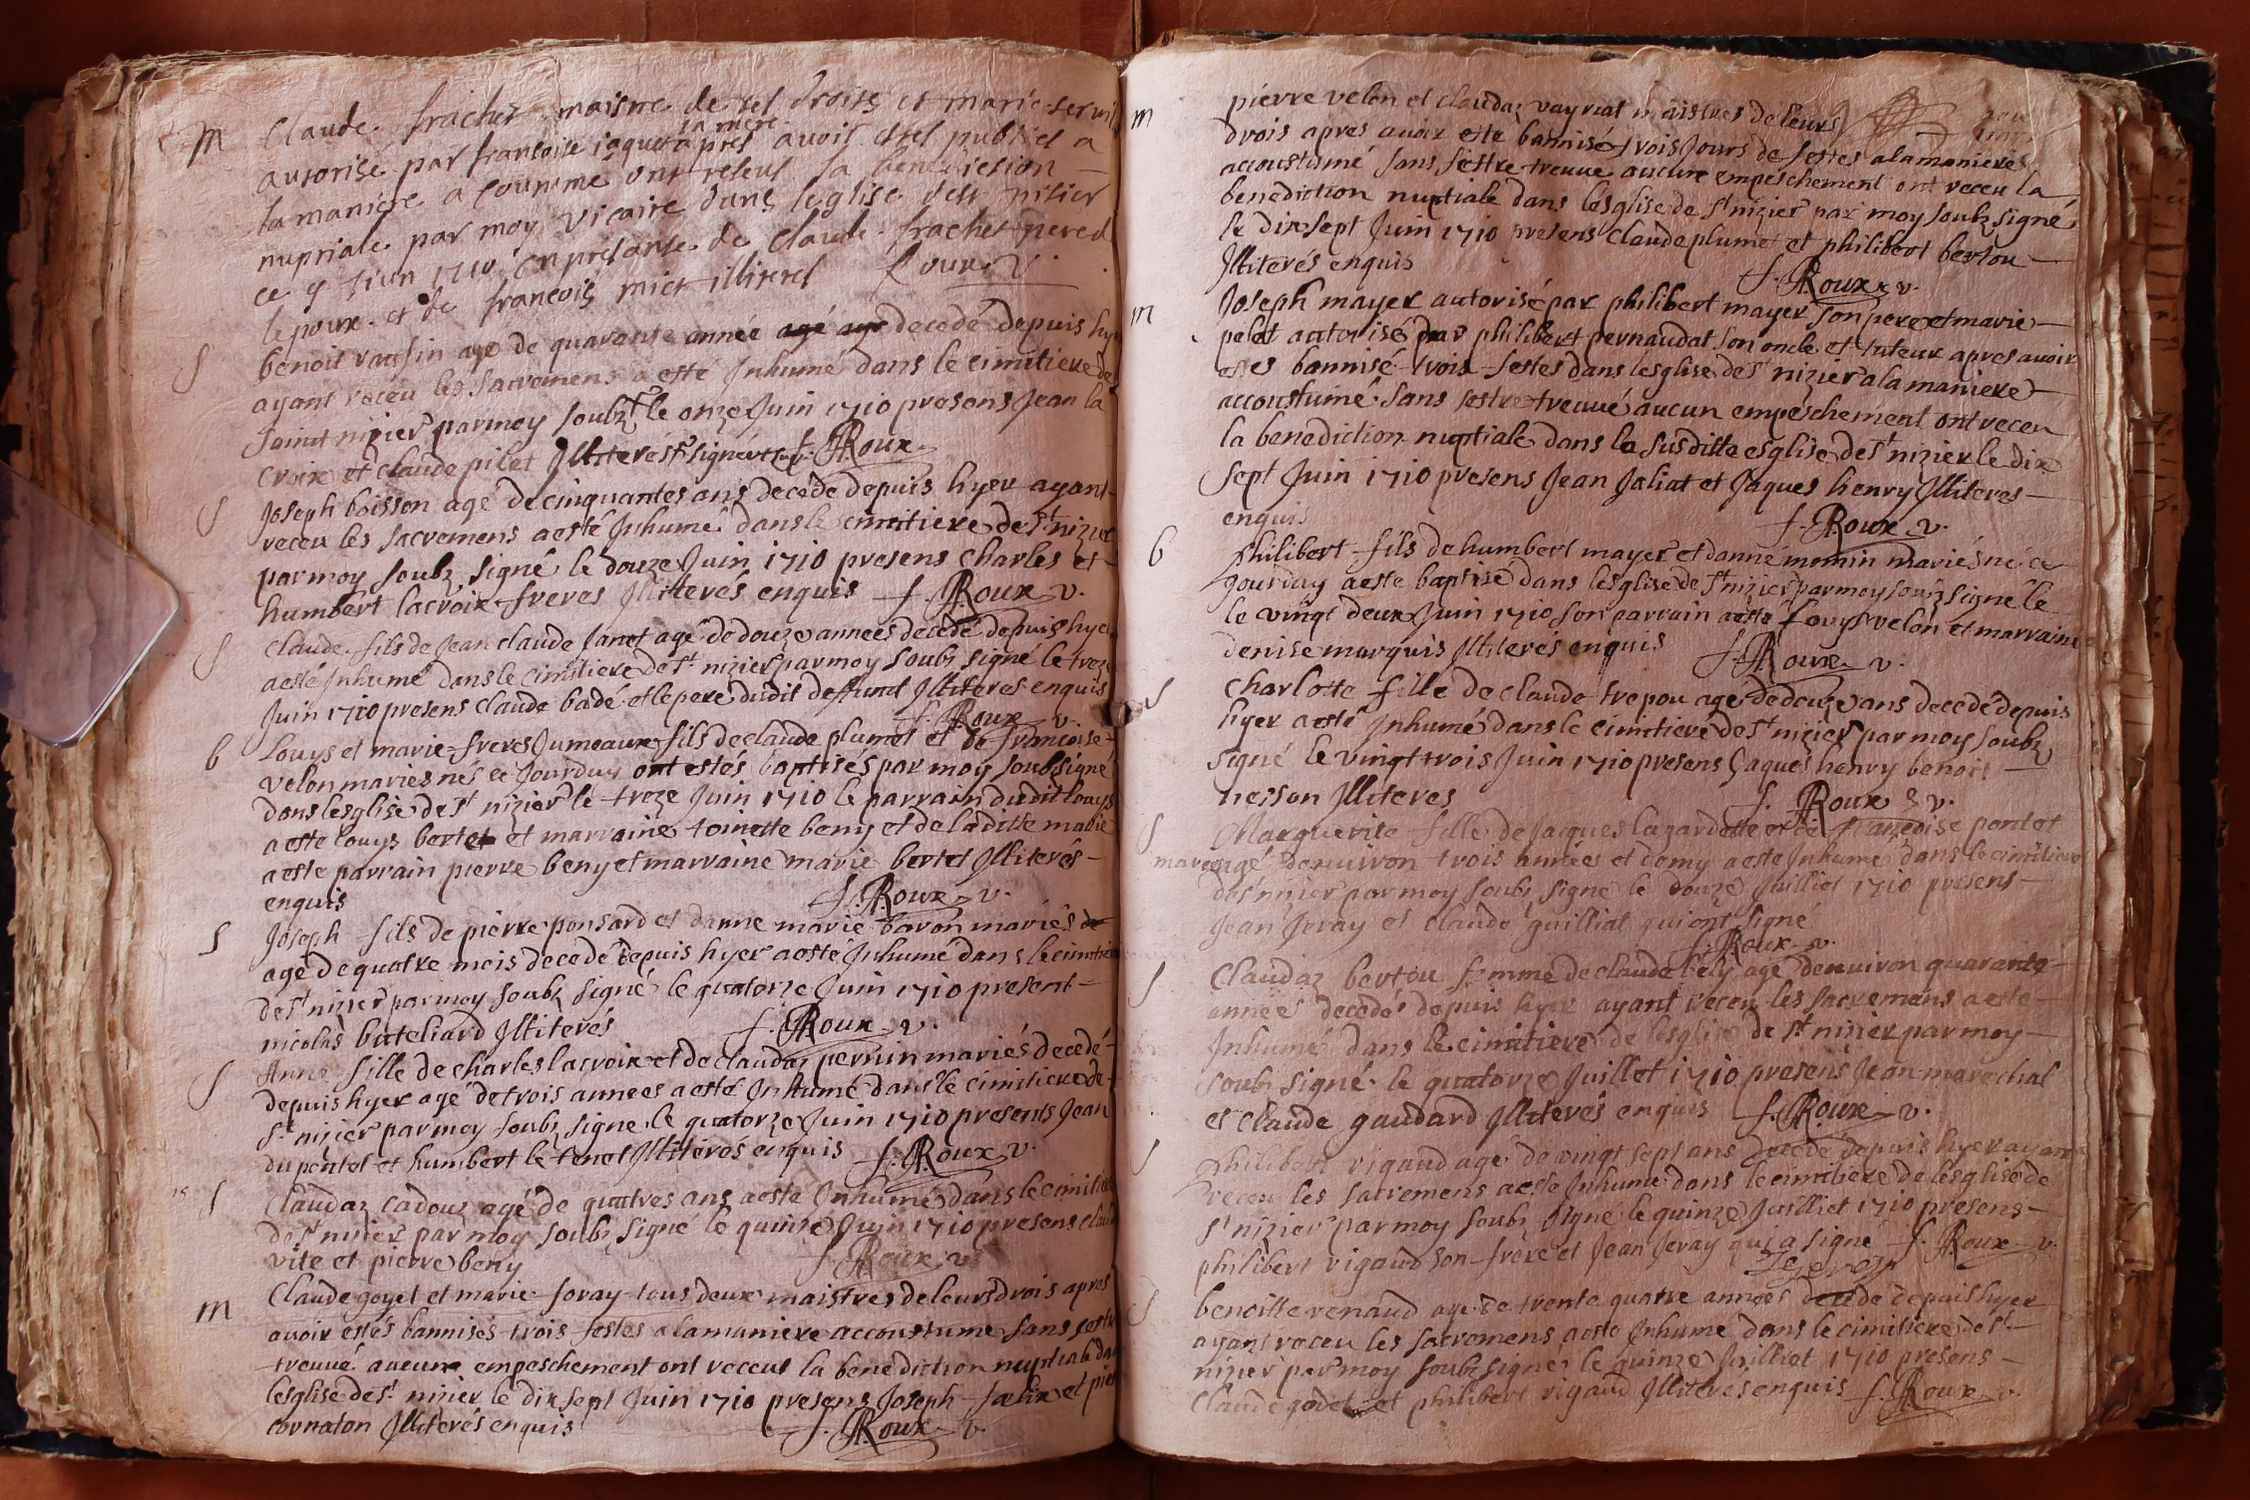 m Claude frachet maistre de ses droits et marie
autorisé par francoise jaquet sa mere apres avoit estes publies a
la maniere acoutumé ont receus la benediction
nuptiale par moy vicaire dans leglise de st nisier
ce 9 juin 1710 en presanse de claude frachet pere d
lepoux et de francois miet illiterel Roux v.
S benoit age de quarante année decedé depuis hyer
ayant receu les sacremens a esté Inhumé dans le cimitiere de
saint nizier par moy soubz le onze Juin 1710 presens Jean la
croix et claude pilet Illiterés f. Roux
S Joseph boisson agé de cinquantes ans decede depuis hyer ayant
receu les sacremens a esté Inhumé dans le cimitiere de st nizier
par moy soubz signé le douze Juin 1710 presens Charles et
humbert lacroix freres Illiterés enquis f. Roux v.
S Claude fils de Jean claude Janet agé de douze annees decedé depuis hyer
a esté Inhumé dans le cimitiere de st nizier par moy soubz signé le treze
Juin 1710 presens claude badé et le pere dudit deffunct Illiteres enquis
f. Roux v.
b Louys et marie freres Jumeaux fils de claude plumet et de francoise
velon mariés nés ce Jourduy ont estés baptisés par moy soubsigné
dans lesglise de st nizier le treze Juin 1710 le parrain dudit louys
a este louys bertet et marraine toinette beny et de laditte marie
a este parrain pierre beny et marraine marie bertet Illiterés
enquis f. Roux v.
S Joseph fils de pierre ponsard et danne marie baron mariés
agé de quatre mois decedé depuis hyer a esté Inhumé dans le cimitiere
de st nizier par moy soubz signé le quatorze Juin 1710 present
nicolas buteliard Illiterés f. Roux v.
S Anne fille de charles lacroix et de claudaz perrin mariés decedé
depuis hyer agé de trois annees a esté Inhumé dans le cimitiere de
st nizier par moy soubz signé le quatorze Juin 1710 presents Jean
dupontet et humbert le tenet Illiterés enquis f. Roux v.
S Claudaz cadouz agé de quattres ans a este Inhumé dans le cimitiere
de st nizier par moy soubz signé le quinze Juin 1710 presens
vite et pierre beny f. Roux v.
m Claude goyet et marie foray tous deux maistres de leurs drois apres
avoir estés bannisés trois festes a la maniere accoustumé sans sestre
treuvé aucune empeschement ont receus la benediction nuptiale dans
lesglise de st nizier le dix sept Juin 1710 presens Joseph et
cornaton Illiterés enquis f. Roux v.
m pierre velon et claudaz vayriat maistres de leurs
drois apres avoir este bannisé trois Jours de festes a la manieres
accoustumé sans sestre treuve aucune empeschement ont receu la
benediction nuptiale dans lesglise de st nizier par moy soubz signé
le dix sept Juin 1710 presens Claude plumet et philibert bertou
Illiterés enquis f. Roux v.
m Joseph mayer autorisé par philibert mayer son pere et marie
pelet autorisé par philibert pernaudat son oncle et tuteur apres avoir
estes bannisé trois festes dans lesglise de st nizier a la maniere
accoustumé sans sestre treuvé aucun empeschement ont receu
la benediction nuptiale dans la susditte esglise de st nizier le dix
sept Juin 1710 presens Jean Jaliat et Jaques henry Illiteres
enquis f. Roux v.
b philibert fils de humbert mayer et danne monin mariés né ce
Jourduy a este baptisé dans lesglise de st nizier par moy soubz signé le
le vingt deux Juin 1710 son parrain a esté Louys velon et marraine
denise marquis Illiterés enquis f. Roux v.
S Charlotte fille de claude trepou age de douze ans decedé depuis
hyer a esté Inhumé dans le cimitiere de st nizier par moy soubz
signé le vingt trois Juin 1710 presens Jaques henry benoit
nesson Illiteres f. Roux v.
S Marguerite fille de Jacques lagardette et de francoise pontet
agé denuiron trois années et demy a este Inhumé dans le cimitiere
de st nizier par moy soubz signé le douze Juilliet 1710 presens
Jean Jeray et claude guilliat qui ont signé
f. Roux v.
S Claudaz bertou femme de claude bely agé denuiron quarante
année decedé depuis hyer ayant receu les sacremens a este
Inhumé dans le cimitiere de lesglise de st nizier par moy
soubz signé le quatorze Juillet 1710 presens Jean marechal
et claude gaudard Illiterés enquis f. Roux v.
S Philibert rigaud agé de vingt sept ans decede depuis hyer ayant
receu les sacremens a este Inhumé dans le cimitiere de lesglise de
st nizier par moy soubz signé le quinze Juilliet 1710 presens
philibert rigaud son frere et Jean Jeray qui a signé f. Roux v.
S benoitte renaud age de trente quatre années decede depuis hyer
ayant receu les sacremens a este Inhumé dans le cimitiere de st
nizier par moy soubz signé le quinze Juilliet 1710 presens
Claude godet et philibert rigaud Illiteres enquis f. Roux v.